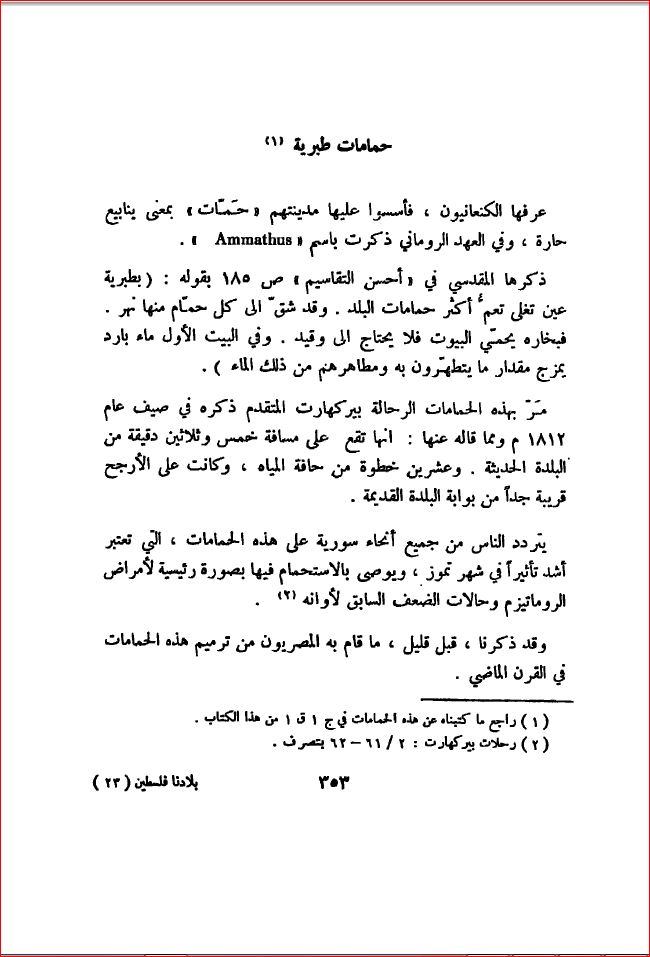 حمامات طبرية (١)
عرفها الكنعانيون ، فأسسوا عليها مدينتهم « حَمّات » بمعنى ينابيع
حارة ، وفي العهد الروماني ذكرت باسم « Ammathus » .
ذكرها المقدسي في « أحسن التقاسيم » ص ١٨٥ بقوله : ( بطبرية
عين تغلي تعمُّ أكثر حمامات البلد . وقد شقّ الى كل حمّام منها نهر .
فبخاره يحمّي البيوت فلا يحتاج الى وقيد . وفي البيت الأول ماء بارد
يمزج مقدار ما يتطهّرون به ومطاهرهم من ذلك الماء ) .
مَرّ بهذه الحمامات الرحالة بيركهارت المتقدم ذكره في صيف عام
١٨١٢ م ومما قاله عنها : انها تقع على مسافة خمس وثلاثين دقيقة من
البلدة الحديثة . وعشرين خطوة من حافة المياه ، وكانت على الأرجح
قريبة جداً من بوابة البلدة القديمة .
يتردد الناس من جميع أنحاء سورية على هذه الحمامات ، التي تعتبر
أشد تأثيراً في شهر تموز ، ويوصى بالاستحمام فيها بصورة رئيسية لأمراض
الروماتيزم وحالات الضعف السابق لأوانه (٢) .
وقد ذكرنا ، قبل قليل ، ما قام به المصريون من ترميم هذه الحمامات
في القرن الماضي .
( ١ ) راجع ما كتبناه عن هذه الحمامات في ج ١ ق ١ من هذا الكتاب .
( ٢ ) رحلات بيركهارت : ٢ / ٦١ – ٦٢ بتصرف .
٣٥٣
بلادنا فلسطين ( ٢٣ )